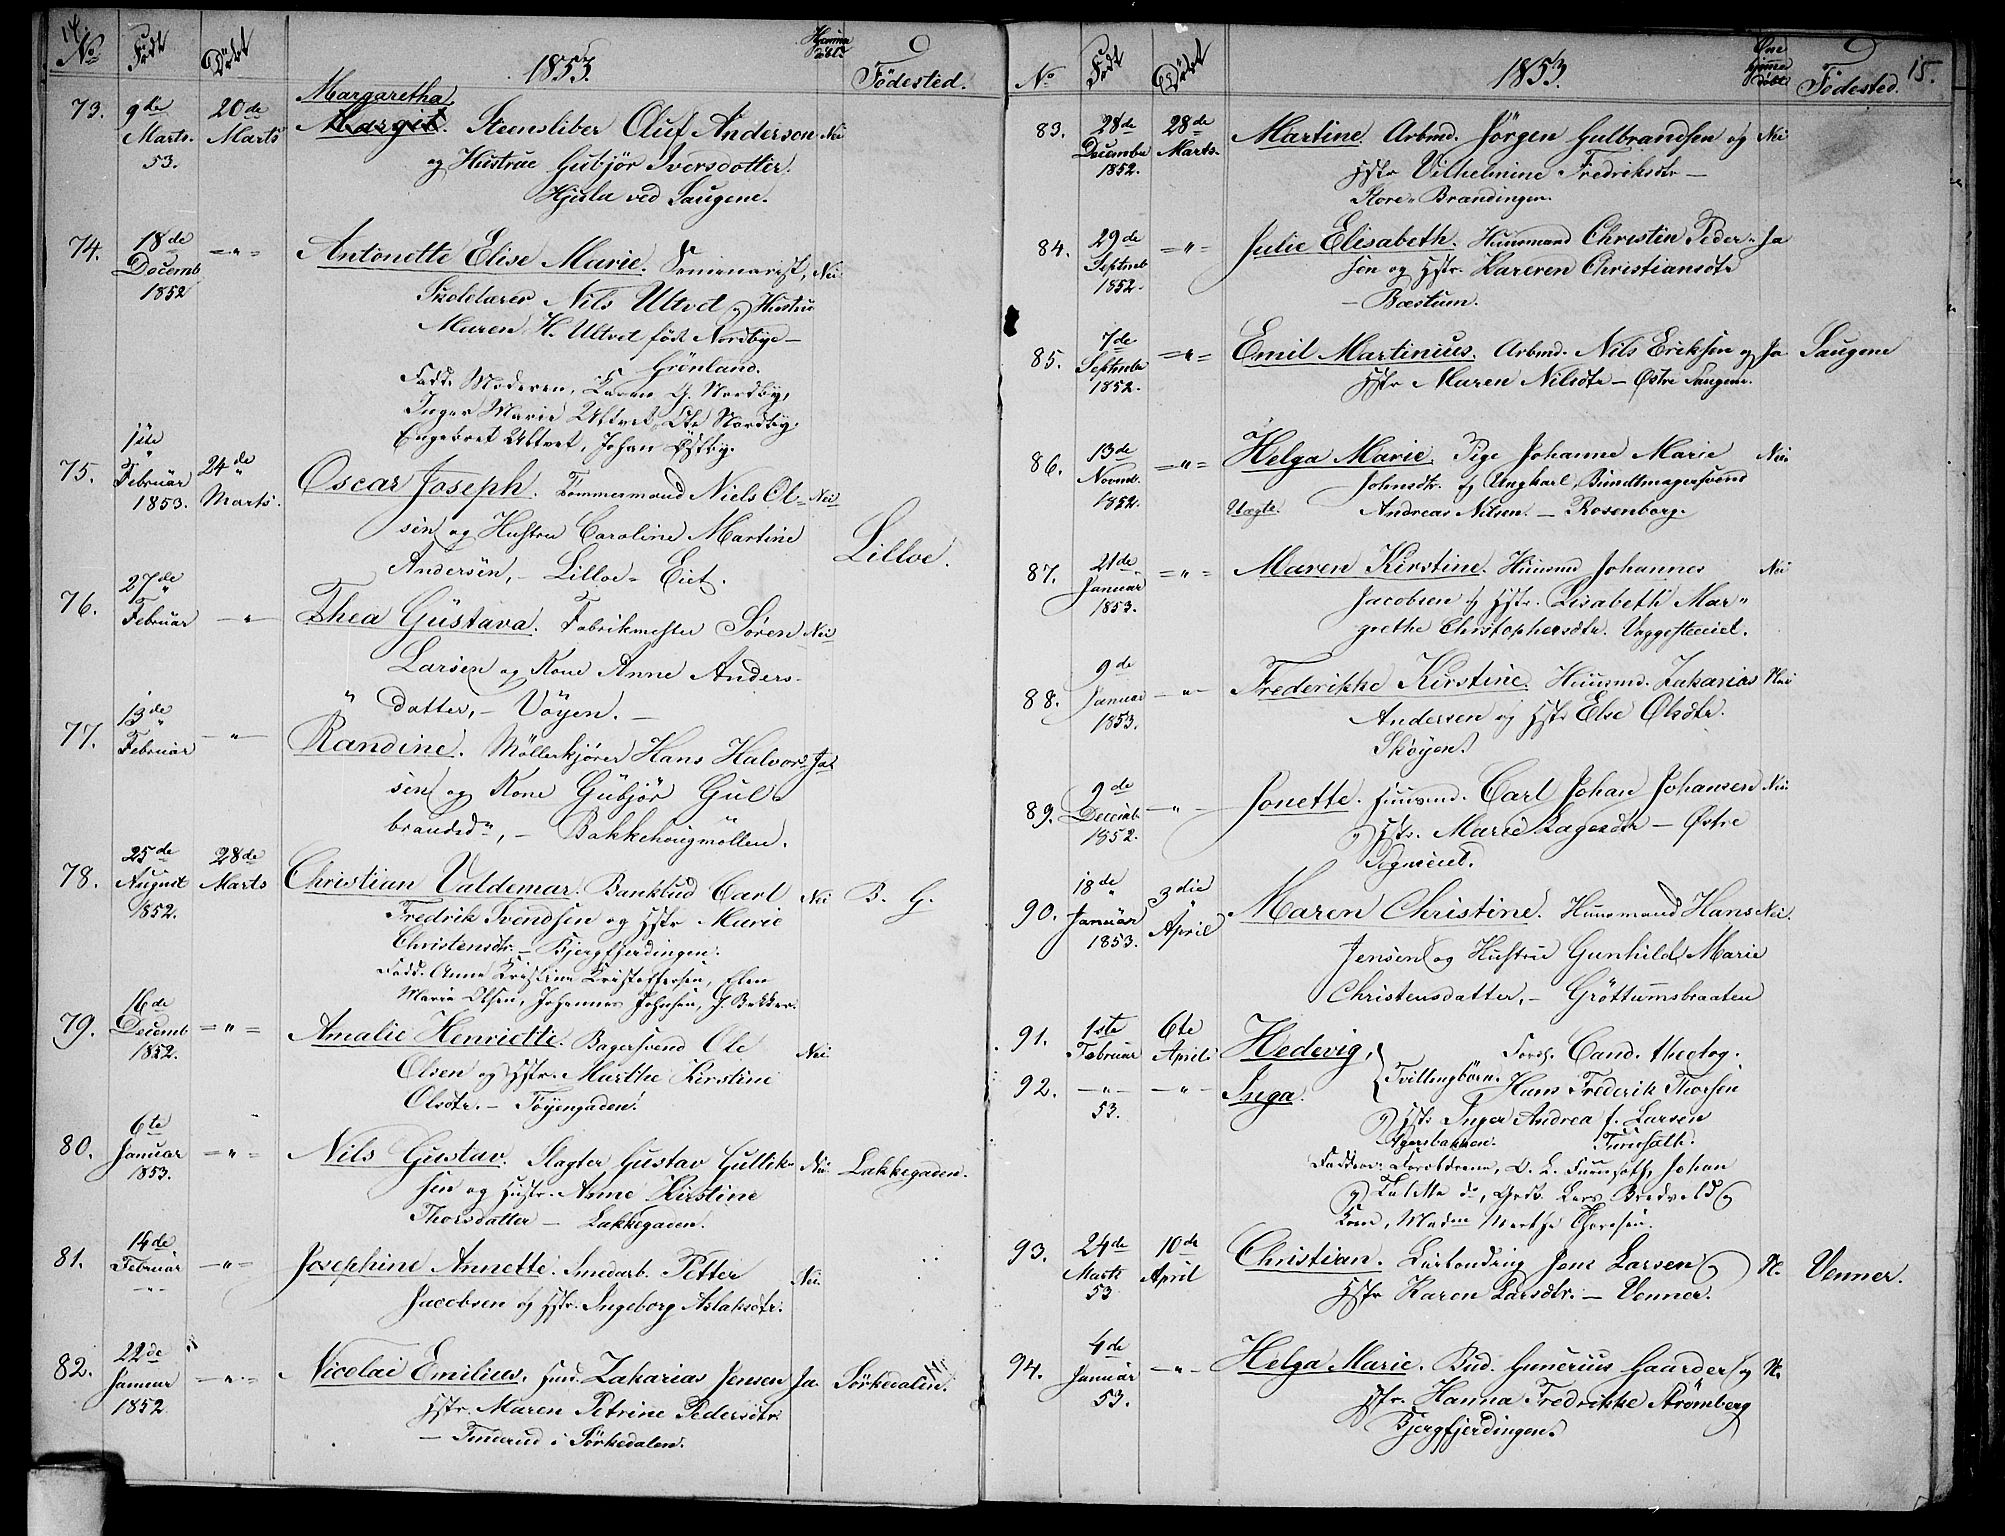 14.
No Født Døbt 1853. Hjemme døbt Fødested.
73. 9de Marts 53. 20de Marts Margaretha
Margit. Steensliber Oluf Anderson Nei
og Hustrue Gubjør Iversdotter.
Hjula ved Saugene.
74. 18de Decemb 1852 =„= Antonette Elise Marie. Seminarist, Nei
Skolelærer Nils Ultvet og Hustru
Maren H. Ultvet født Nordbye –
Grönland.
Fadd. Moderen, Karen G. Nordby,
Inger Marie Ultvet, Ole Nordby.
Engebret Ultvet, Johan Østby.
75. 1ste Februar 1853. 24de Marts. Oscar Joseph. Tømmermand Niels Ol= Nei
sen og Hustru Caroline Martine Lilloe.
Andersen, – Lilloe=Eiet.
76. 27de Februar –„– Thea Gustava. Fabrikmester Sören Nei
Larsen og Kone Anne Anders-
datter, – Vöyen. –
77. 13de Februar –„– Randine. Möllerkjörer Hans Halvor= Ja
sen og Kone Gubjör Gul=
brandsd., – Bakkehougmöllen.
78. 25de August 1852. 28de Marts Christian Valdemar. Bankbud Carl Nei B. G.
Fredrik Svendsen og Hstr Marie
Christensdtr. – Bjergfjerdingen.
Fadd. Anne Kristine Kristoffersen, Elen
Maria Olsen, Johannes Johnsen, J. Bekker.
79. 16de Decemb 1852. =„= Amalie Henriette. Bagersvend Ole Nei.
Olsen og Hstr. Marthe Kirstine
Olsdtr. – Töyengaden.
80. 6te Januar 1853. =„= Nils Gustav. Slagter Gustav Gullik= Nei Lakkegaden.
sen og Hustr. Anne Kirstine
Thorsdatter – Lakkegaden.
81. 14de Februar –„– –„– Josephine Annette. Smedarb. Petter Nei.
Jacobsen og Hstr. Ingeborg Aslaksdtr.
82. 22de Januar 1852 –„– Nicolai Emilius. Huusmd. Zakarias Jensen Ja. Sörkedalen.
Hstr. Maren Petrine Pedersdtr.
– Tinerud i Sörkedalen.
No Født Døbt 1853. Om hjemme døbt Fødested. 15.
83. 28de Decembr 1852. 28de Marts. Martine. Arbmd. Jörgen Gulbrandsen og Nei
Hstr Vilhelmine Fredriksdtr –
Store=Brandingen.
84. 29de Septmb 1852. =„= Julie Elisabeth. Huusmand Christin Peder= Ja
sen og Hstr. Kareren Christiansdtr
– Bæstum.
85. 7de Septmbr 1852. =„= Emil Martinius. Arbmd. Nils Eriksen og Ja Saugene
Hstr Maren Nilsdtr – Østre Saugene.
86. 13de Novmb. 1852. =„= Helga Marie. Pige Johanne Marie Nei.
Johnsdtr. og Ungkarl, Bundtmagersvend
Uægte. Andreas Nilsen. – Rosenborg.
87. 21de Januar 1853. =„= Maren Kirstine. Huusmd Johannes Nei
Jacobsen og Hstr. Lisabeth Mar=
grethe Christophersdtr. Vaggesteeiet.
88. 9de Januar 1853. –„– Frederikke Kirstine. Huusmd. Zakarias Nei
Andersen og Hstr Else Olsdtr.
Skøyen.
89. 9de Decemb. 1852. –„– Jonette. Huusmd. Carl Johan Johansen Nei.
og Hstr. Marie Aagesdtr – Østre
90. 18de Januar 1853. 3die April Maren Christine. Huusmand Hans Nei.
Jensen og Hustrue Gunhild Marie
Christensdatter, – Gröttumsbraaten
91. 1ste Februar 6te April Hedevig, Tvillingbörn. Forst. Cand. theolog.
92. –„– 53. –„– Inga. Hans Frederik Thorsen
og Hstr Inger Andrea f. Larsen
Agersbakken. Tuusalt.
Faddere: Forældrene, O. L. Johan
Kone, Madm Marthe Thoresen.
93. 24de Marts 53 10de April Christian. Leilænding Jens Larsen og N. Venner.
Hstr Karen Larsdtr. – Venner.
94. 4de Januar 53. –„– Helga Marie. Bud. Gunerius Gaarder og N.
Hstr. Hanna Fredrikke Strømberg
Bjergfjerdingen.